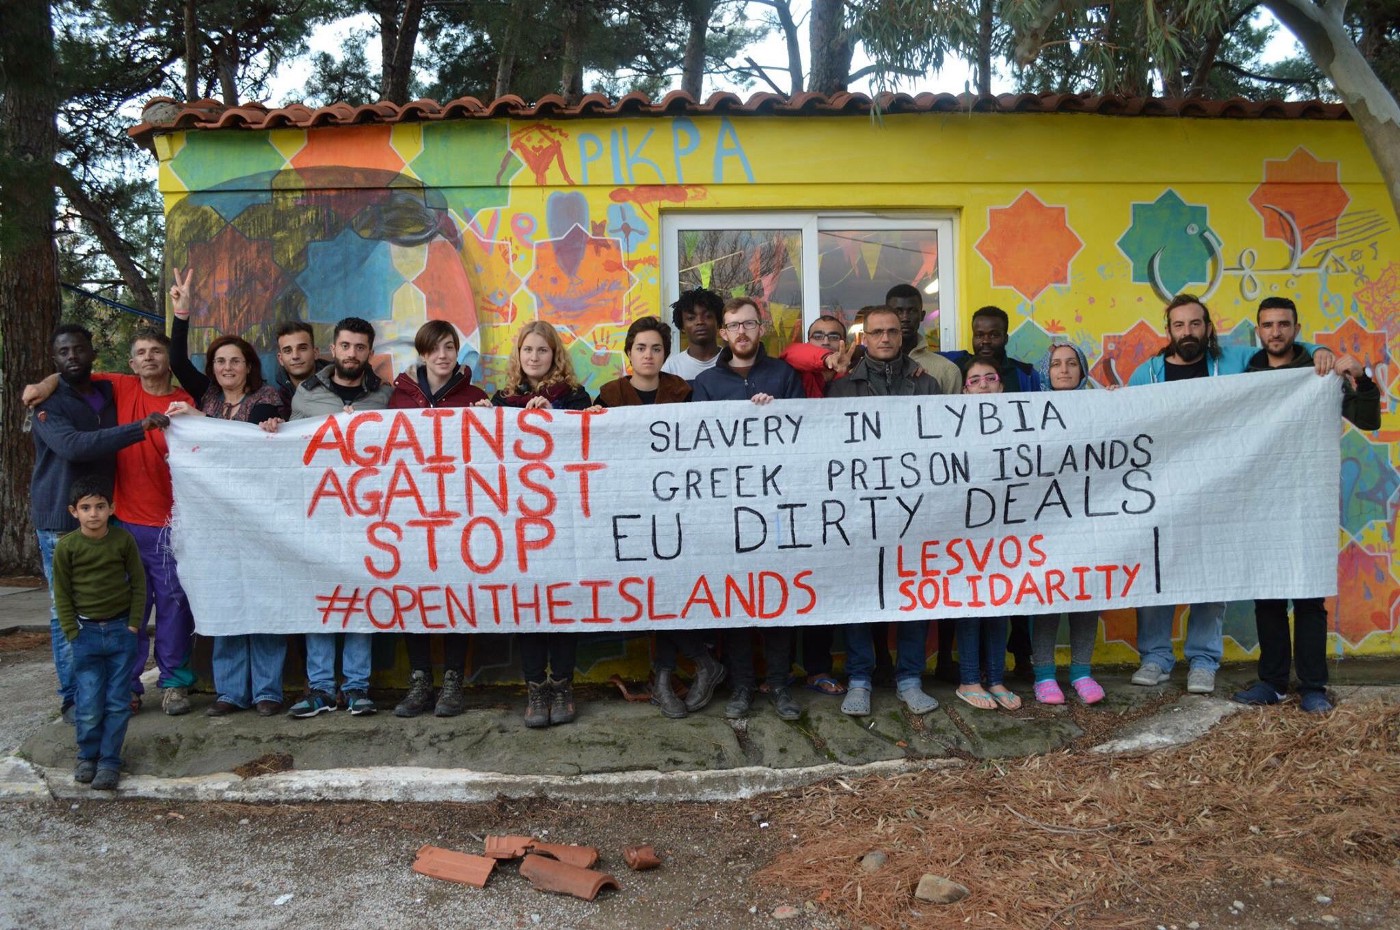 PIKPA
AGAINST SLAVERY IN LYBIA
AGAINST GREEK PRISON ISLANDS
STOP EU DIRTY DEALS
#OPENTHEISLANDS
LESVOS
SOLIDARITY